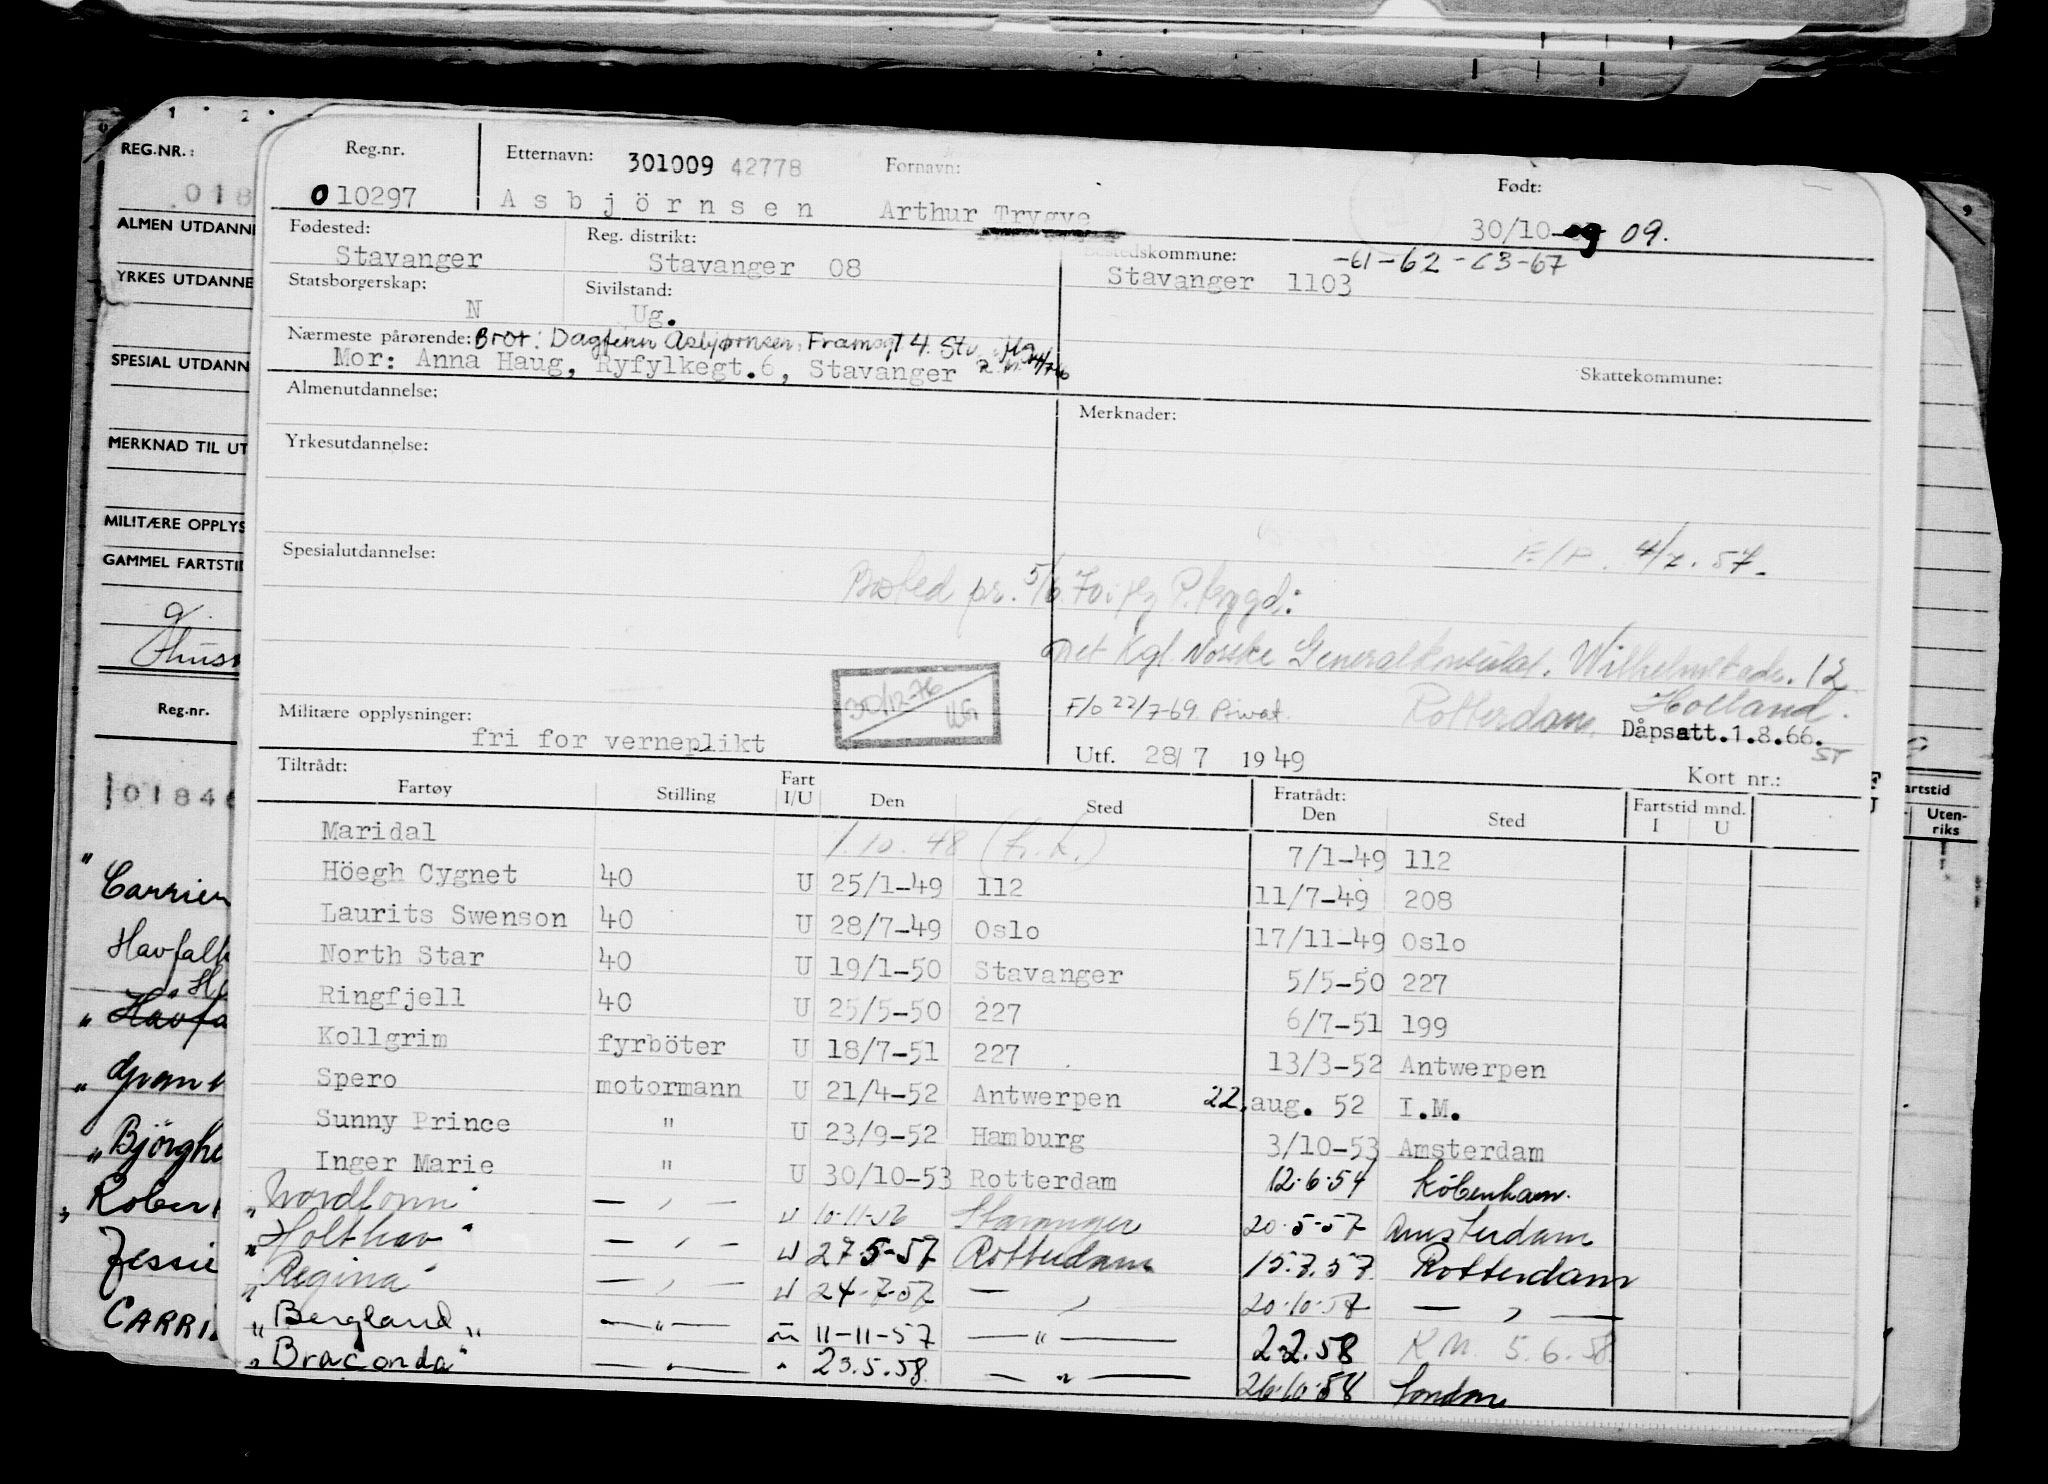 REG.NR.:
018
ALMEN UTDANNE
YRKES UTDANNE
SPESIAL UTDANN
MERKNAD TIL UT
MILITÆRE OPPLYS
GAMMEL FARTSTI
Reg.nr.
01846
Carrier
Havfalk
Bjørghe
Rober
Jessie
CARRI
Reg.nr. Etternavn: 301009 42778 Fornavn: Født:
010297 Asbjörnsen Arthur Trygve 30/10- 09.
Fødested: Reg. distrikt: Bostedskommune: -61-62-63-67
Stavanger Stavanger 08 Stavanger 1103
Statsborgerskap: Sivilstand:
N Ug.
Nærmeste pårørende: Bror: Dagfinn Asbjørnsen, Framsgt 4. Stv.
Mor: Anna Haug, Ryfylkegt.6, Stavanger
Skattekommune:
Almenutdannelse: Merknader:
Yrkesutdannelse:
4/2.57.
Spesialutdannelse:
Bosted pr. 5/6 70 P.trygd:
Det Kgl. Norske Generalkonsulat. Wilhelmskade. 12
Rotterdam, Holland.
30/12-76
F/o 22/7-69. Privat.
Dåpsatt.1.8.66.
ST
Militære opplysninger:
fri for verneplikt
Utf. 28/7 1949 Kort nr.:
Tiltrådt: Fratrådt:
Fartøy Stilling Fart I/U Den Sted Den Sted Fartstid mnd. I U
artstid
Uten-
riks
Maridal 1.10.48 7/1-49 112
Höegh Cygnet 40 U 25/1-49 112 11/7-49 208
Laurits Swenson 40 U 28/7-49 Oslo 17/11-49 Oslo
North Star 40 U 19/1-50 Stavanger 5/5-50 227
Ringfjell 40 U 25/5-50 227 6/7-51 199
Kollgrim fyrböter U 18/7-51 227 13/3-52 Antwerpen
Spero motormann U 21/4-52 Antwerpen 22. aug. 52 I.M.
Sunny Prince " U 23/9-52 Hamburg 3/10-53 Amsterdam
Inger Marie " U 30/10-53 Rotterdam 12.6.54 Köbenham.
"Nordfonn" — , — U 10-11-56 Stavanger 20.5-57 Amsterdam
"Holthav" — , — U 27.5-57 Rotterdam 15.7.57 Rotterdam
"Regina" — , — U 24-7-57 — , — 20.10.57 — , —
"Bergland" — " — U 11-11-57 — " — 2.2.58 K M. 5.6.58.
"Braconda" — " — " 23.5.58. — " — 26.10.58 London